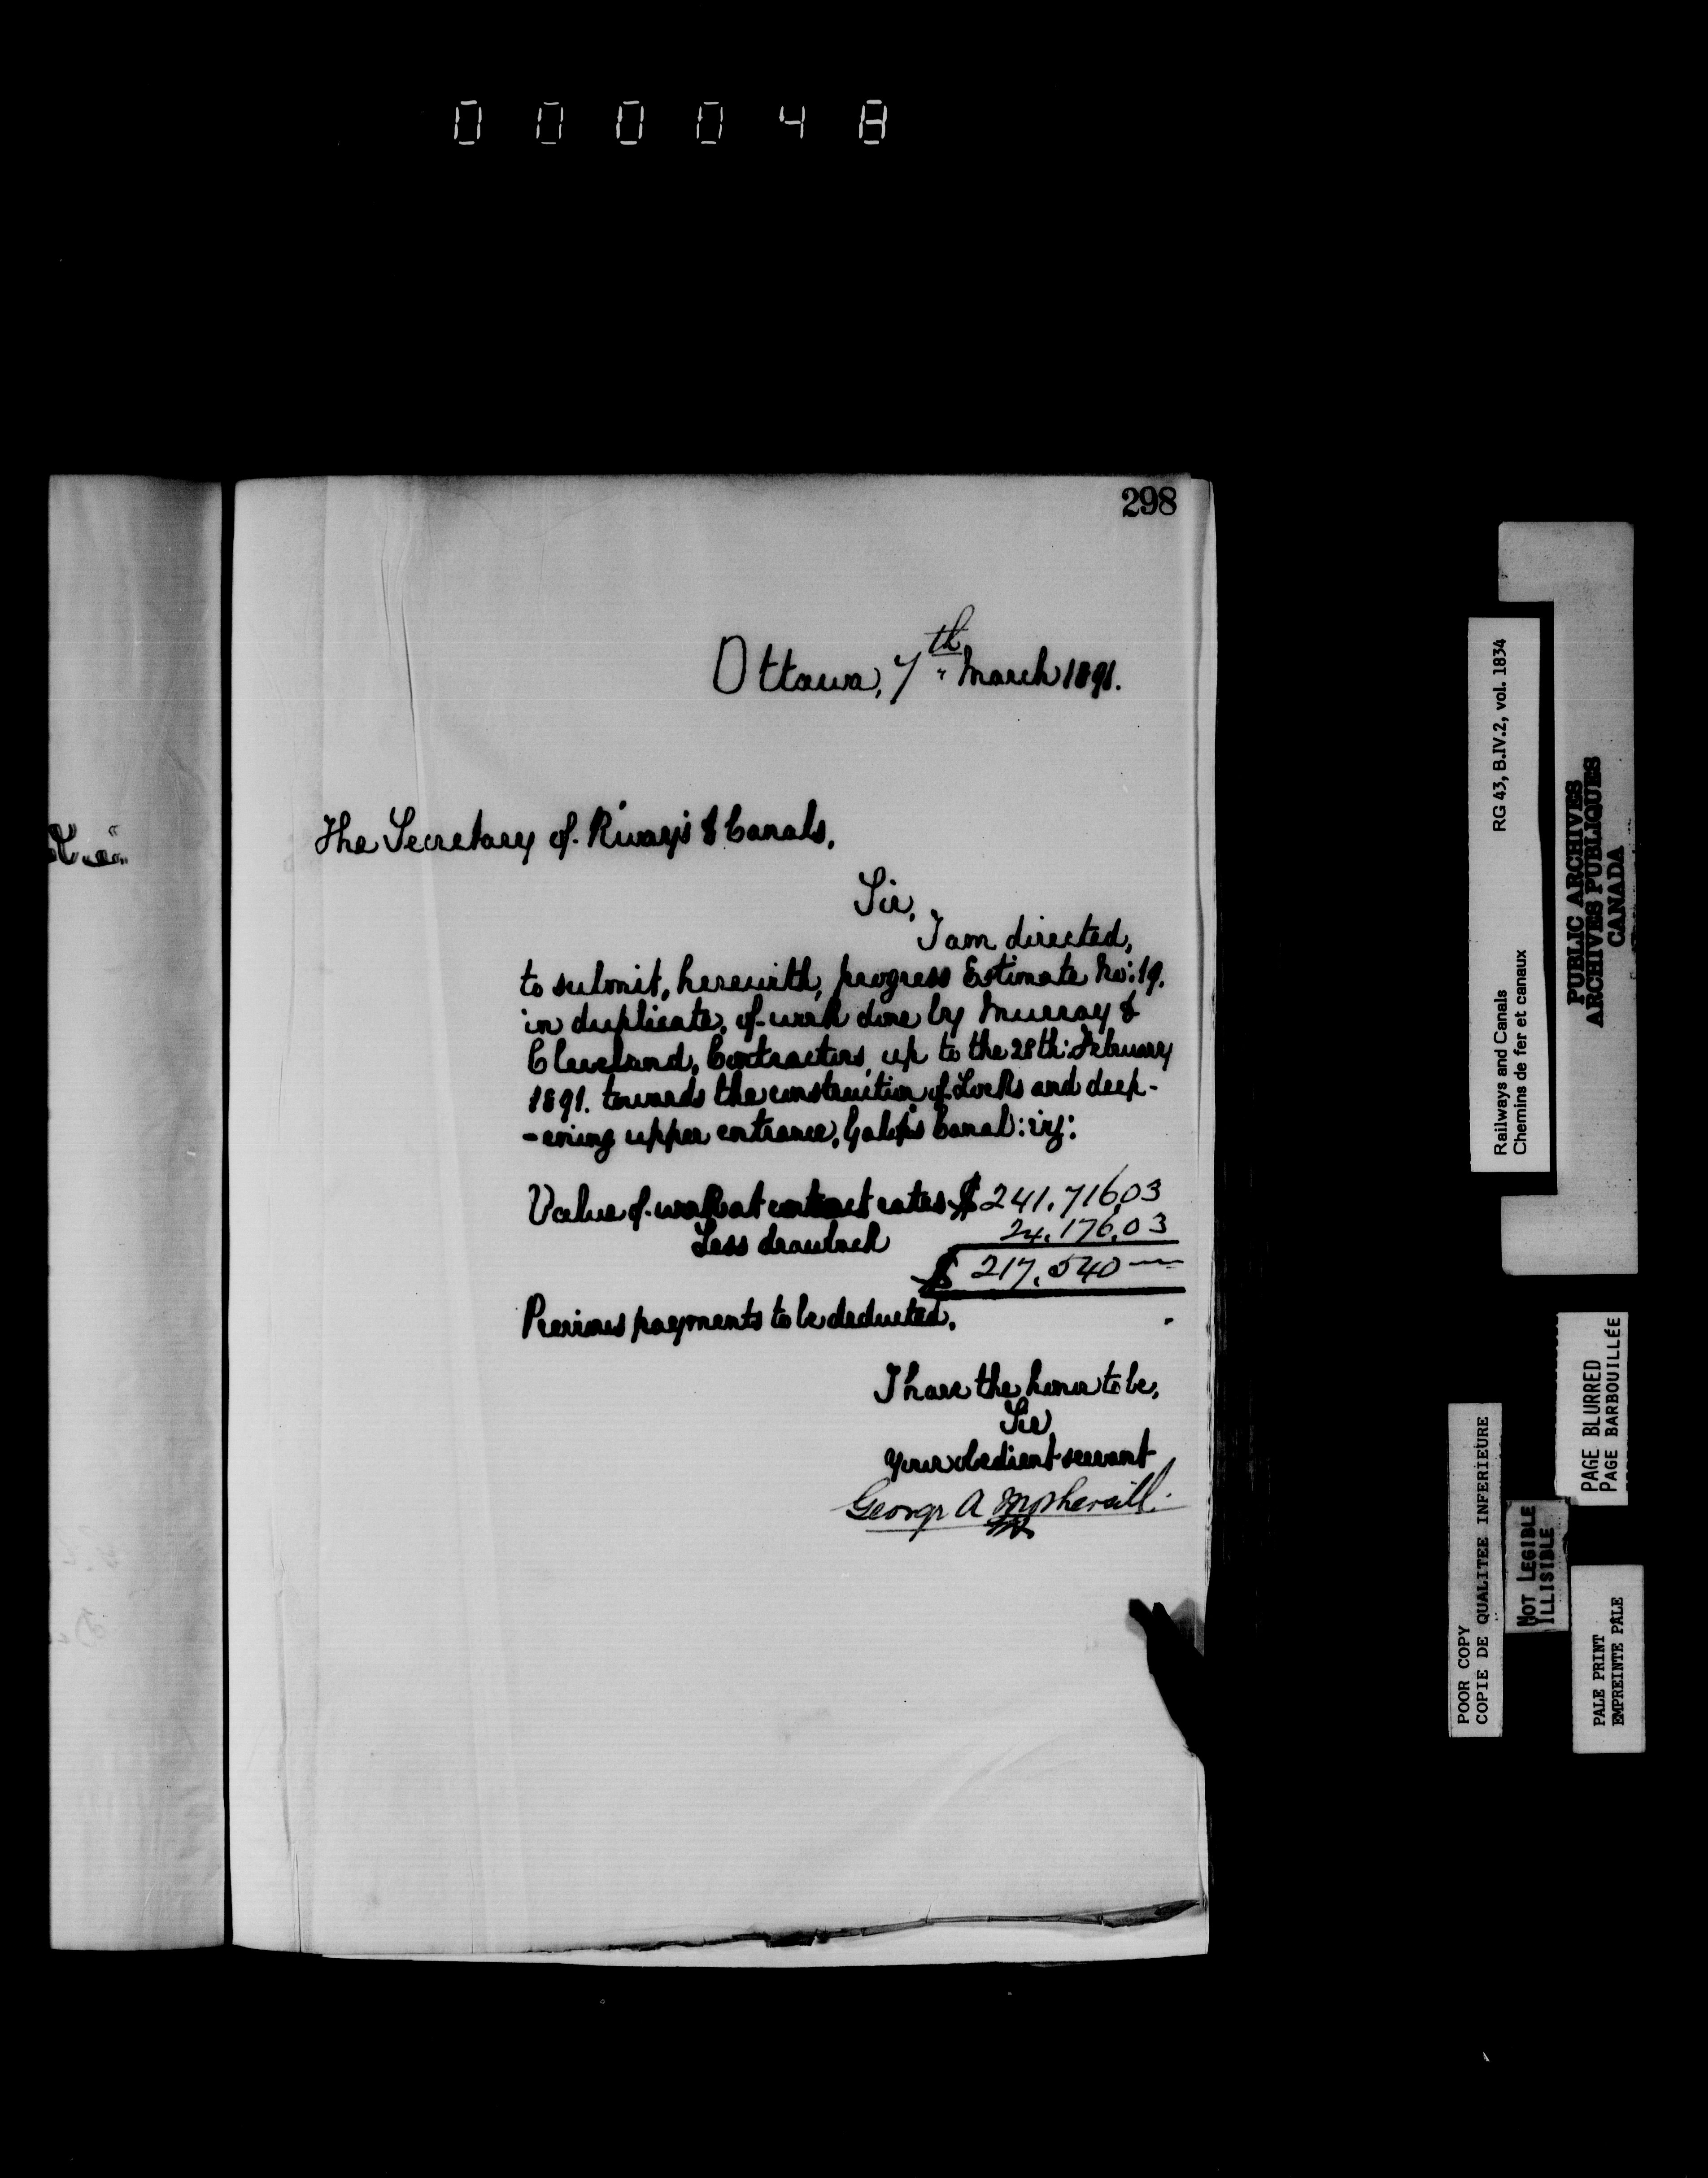 000048
298
Ottawa, 7th March 1891.
The Secretary of R'ways & Canals.
Sir,
I am directed,
to submit, herewith, progress Estimate No: 19.
in duplicate, of work done by Murray &
Cleveland, Contractors, up to the 28th: February
1891. towards the construction of Locks and deep-
-ening upper entrance, Galops Canal: viz:
Value of work at contract rates $241,716.03
Less drawback 24,176.03
$217,540
Previous payments to be deducted.
I have the honor to be,
Sir
Your obedient servant
George A Mothersill.
Railways and Canals RG 43, B.IV.2, vol. 1834
Chemins de fer et canaux
PUBLIC ARCHIVES
ARCHIVES PUBLIQUES
CANADA
PAGE BLURRED
PAGE BARBOUILLÉE
POOR COPY
COPIE DE QUALITEE INFERIEURE
NOT LEGIBLE
ILLISIBLE
PALE PRINT
EMPREINTE PÂLE